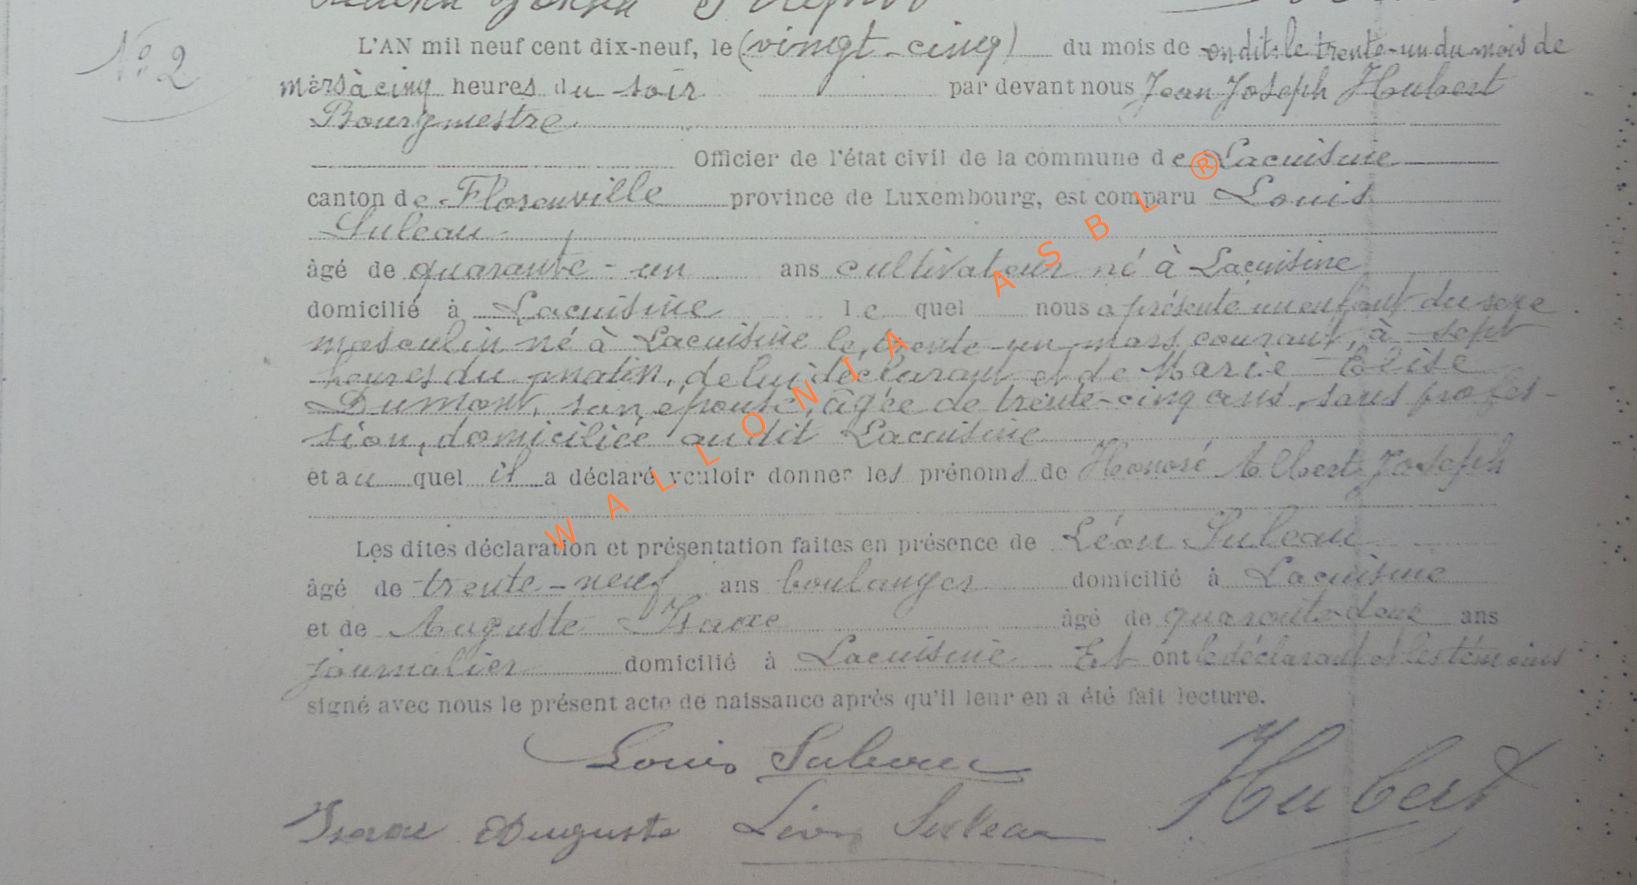 Nº 2
L'AN mil neuf cent dix-neuf, le (vingt-cinq) du mois de on dit: le trente-un du mois de
mars à cinq heures du soir par devant nous Jean Joseph Hubert
Bourgmestre
Officier de l'état civil de la commune de Lacuisine
canton de Florenville province de Luxembourg, est comparu Louis
Suleau
âgé de quarante-un ans cultivateur né à Lacuisine
domicilié à Lacuisine le quel nous a présenté un enfant du sexe
masculin né à Lacuisine le trente-un mars courant, à sept
heures du matin, de lui déclarant et de Marie Elise
Dumont, son épouse, âgée de trente-cinq ans, sans profes-
sion, domiciliée au dit Lacuisine
et au quel il a déclaré vouloir donner les prénoms de Honoré Albert Joseph
Les dites déclaration et présentation faites en présence de Léon Suleau
âgé de trente-neuf ans boulanger domicilié à Lacuisine
et de Auguste Isaac âgé de quarante-deux ans
journalier domicilié à Lacuisine Et ont le déclarant et les témoins
signé avec nous le présent acte de naissance après qu'il leur en a été fait lecture.
Louis Suleau
Hubert
Isaac Auguste Léon Suleau
WALLONIA ASBL ®